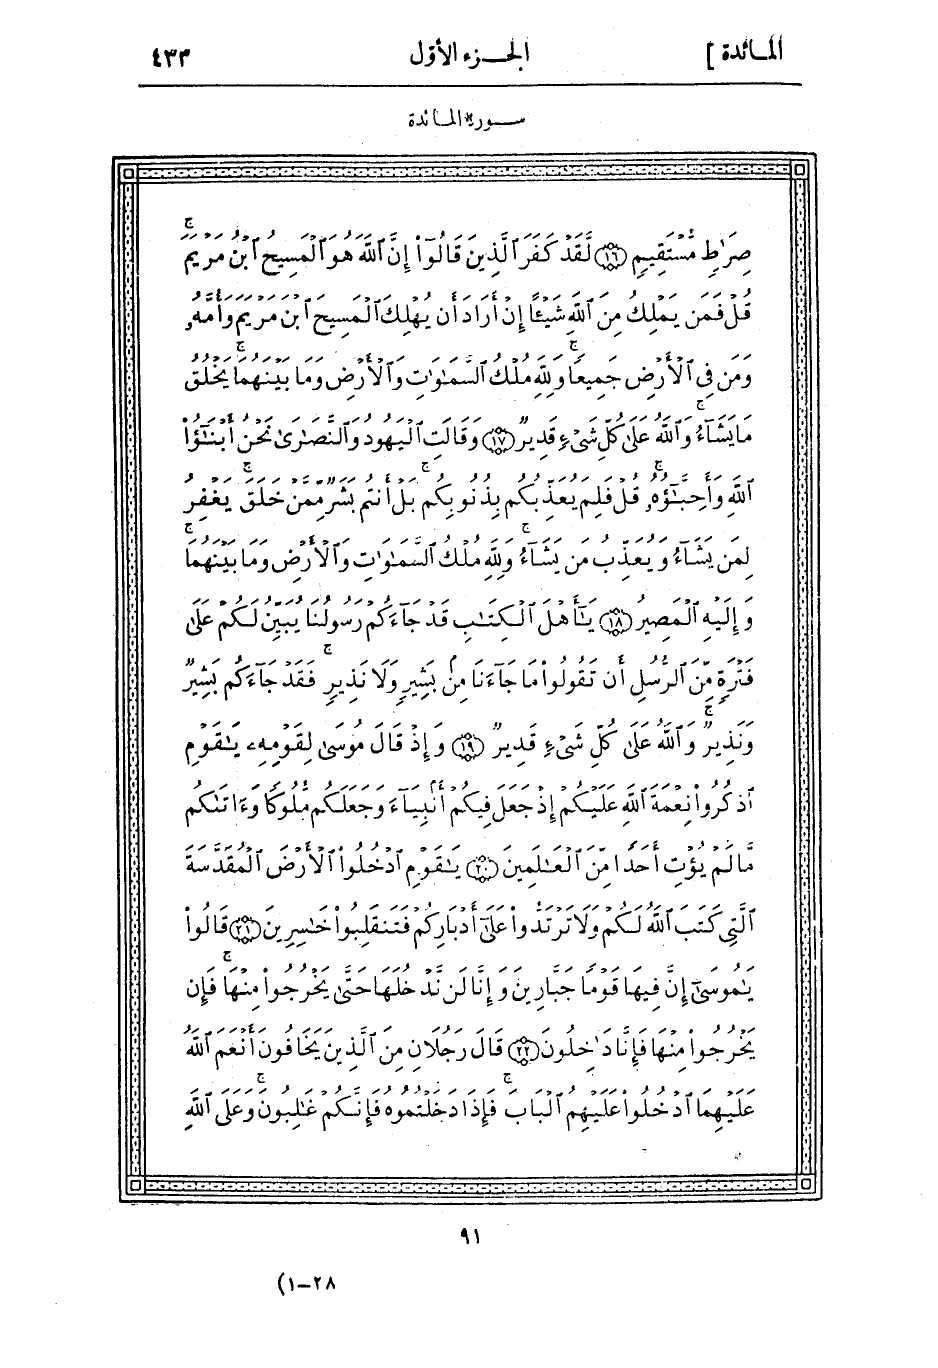 المائدة ] الجزء الأول ٤٣٣
سورة المائدة
صِرَٰطٍ مُّسْتَقِيمٍ ﴿١٦﴾ لَّقَدْ كَفَرَ ٱلَّذِينَ قَالُوٓا۟ إِنَّ ٱللَّهَ هُوَ ٱلْمَسِيحُ ٱبْنُ مَرْيَمَ ۚ
قُلْ فَمَن يَمْلِكُ مِنَ ٱللَّهِ شَيْـًٔا إِنْ أَرَادَ أَن يُهْلِكَ ٱلْمَسِيحَ ٱبْنَ مَرْيَمَ وَأُمَّهُۥ
وَمَن فِى ٱلْأَرْضِ جَمِيعًا ۗ وَلِلَّهِ مُلْكُ ٱلسَّمَٰوَٰتِ وَٱلْأَرْضِ وَمَا بَيْنَهُمَا ۚ يَخْلُقُ
مَا يَشَآءُ ۚ وَٱللَّهُ عَلَىٰ كُلِّ شَىْءٍ قَدِيرٌ ﴿١٧﴾ وَقَالَتِ ٱلْيَهُودُ وَٱلنَّصَٰرَىٰ نَحْنُ أَبْنَٰٓؤُا۟
ٱللَّهِ وَأَحِبَّٰٓؤُهُۥ ۚ قُلْ فَلِمَ يُعَذِّبُكُم بِذُنُوبِكُم ۖ بَلْ أَنتُم بَشَرٌ مِّمَّنْ خَلَقَ ۚ يَغْفِرُ
لِمَن يَشَآءُ وَيُعَذِّبُ مَن يَشَآءُ ۚ وَلِلَّهِ مُلْكُ ٱلسَّمَٰوَٰتِ وَٱلْأَرْضِ وَمَا بَيْنَهُمَا ۖ
وَإِلَيْهِ ٱلْمَصِيرُ ﴿١٨﴾ يَٰٓأَهْلَ ٱلْكِتَٰبِ قَدْ جَآءَكُمْ رَسُولُنَا يُبَيِّنُ لَكُمْ عَلَىٰ
فَتْرَةٍ مِّنَ ٱلرُّسُلِ أَن تَقُولُوا۟ مَا جَآءَنَا مِنۢ بَشِيرٍ وَلَا نَذِيرٍ ۖ فَقَدْ جَآءَكُم بَشِيرٌ
وَنَذِيرٌ ۗ وَٱللَّهُ عَلَىٰ كُلِّ شَىْءٍ قَدِيرٌ ﴿١٩﴾ وَإِذْ قَالَ مُوسَىٰ لِقَوْمِهِۦ يَٰقَوْمِ
ٱذْكُرُوا۟ نِعْمَةَ ٱللَّهِ عَلَيْكُمْ إِذْ جَعَلَ فِيكُمْ أَنۢبِيَآءَ وَجَعَلَكُم مُّلُوكًا وَءَاتَىٰكُم
مَّا لَمْ يُؤْتِ أَحَدًا مِّنَ ٱلْعَٰلَمِينَ ﴿٢٠﴾ يَٰقَوْمِ ٱدْخُلُوا۟ ٱلْأَرْضَ ٱلْمُقَدَّسَةَ
ٱلَّتِى كَتَبَ ٱللَّهُ لَكُمْ وَلَا تَرْتَدُّوا۟ عَلَىٰٓ أَدْبَارِكُمْ فَتَنقَلِبُوا۟ خَٰسِرِينَ ﴿٢١﴾ قَالُوا۟
يَٰمُوسَىٰٓ إِنَّ فِيهَا قَوْمًا جَبَّارِينَ وَإِنَّا لَن نَّدْخُلَهَا حَتَّىٰ يَخْرُجُوا۟ مِنْهَا ۚ فَإِن
يَخْرُجُوا۟ مِنْهَا فَإِنَّا دَٰخِلُونَ ﴿٢٢﴾ قَالَ رَجُلَانِ مِنَ ٱلَّذِينَ يَخَافُونَ أَنْعَمَ ٱللَّهُ
عَلَيْهِمَا ٱدْخُلُوا۟ عَلَيْهِمُ ٱلْبَابَ ۚ فَإِذَا دَخَلْتُمُوهُ فَإِنَّكُمْ غَٰلِبُونَ ۚ وَعَلَى ٱللَّهِ
٩١
(١-٢٨